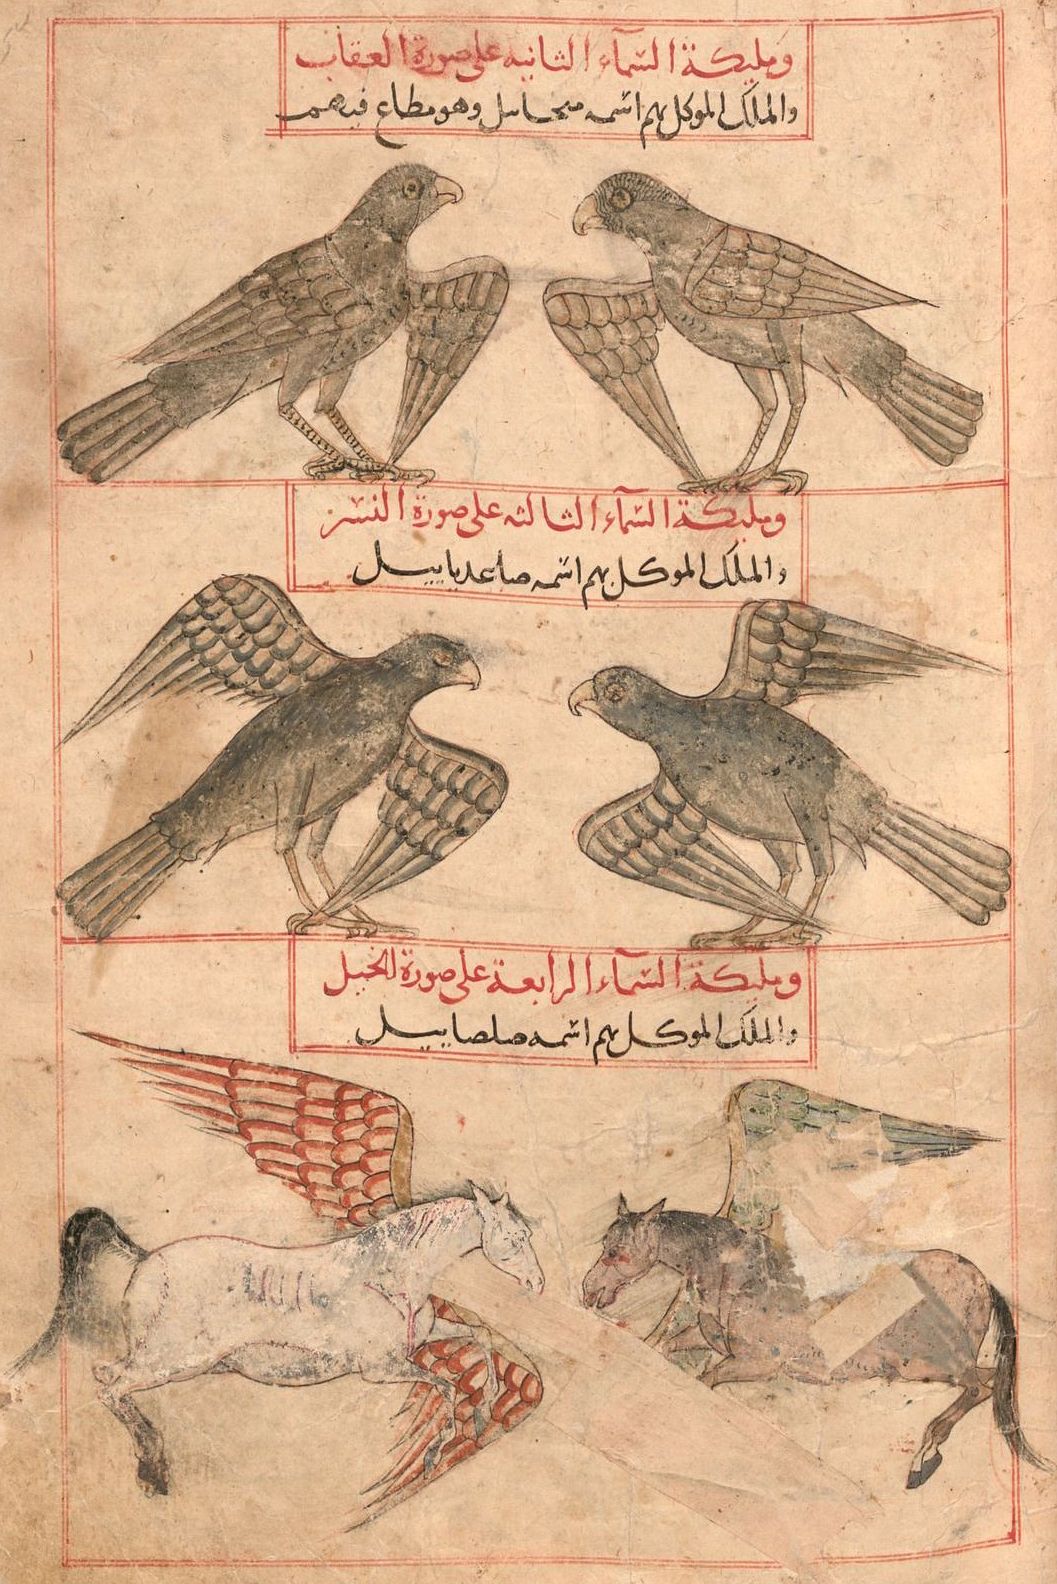 وملیكة السّمآء الثانیه على صورة العقاب
والملك الموكل بهم اسمه میخاییل وهو مطاع فیهم
وملیكة السّمآء الثالثه على صورة النسر
والملك الموكل بهم اسمه صاعدیاییل
وملیكة السّمآء الرابعة على صورة الخیل
والملك الموكل بهم اسمه صلصاییل